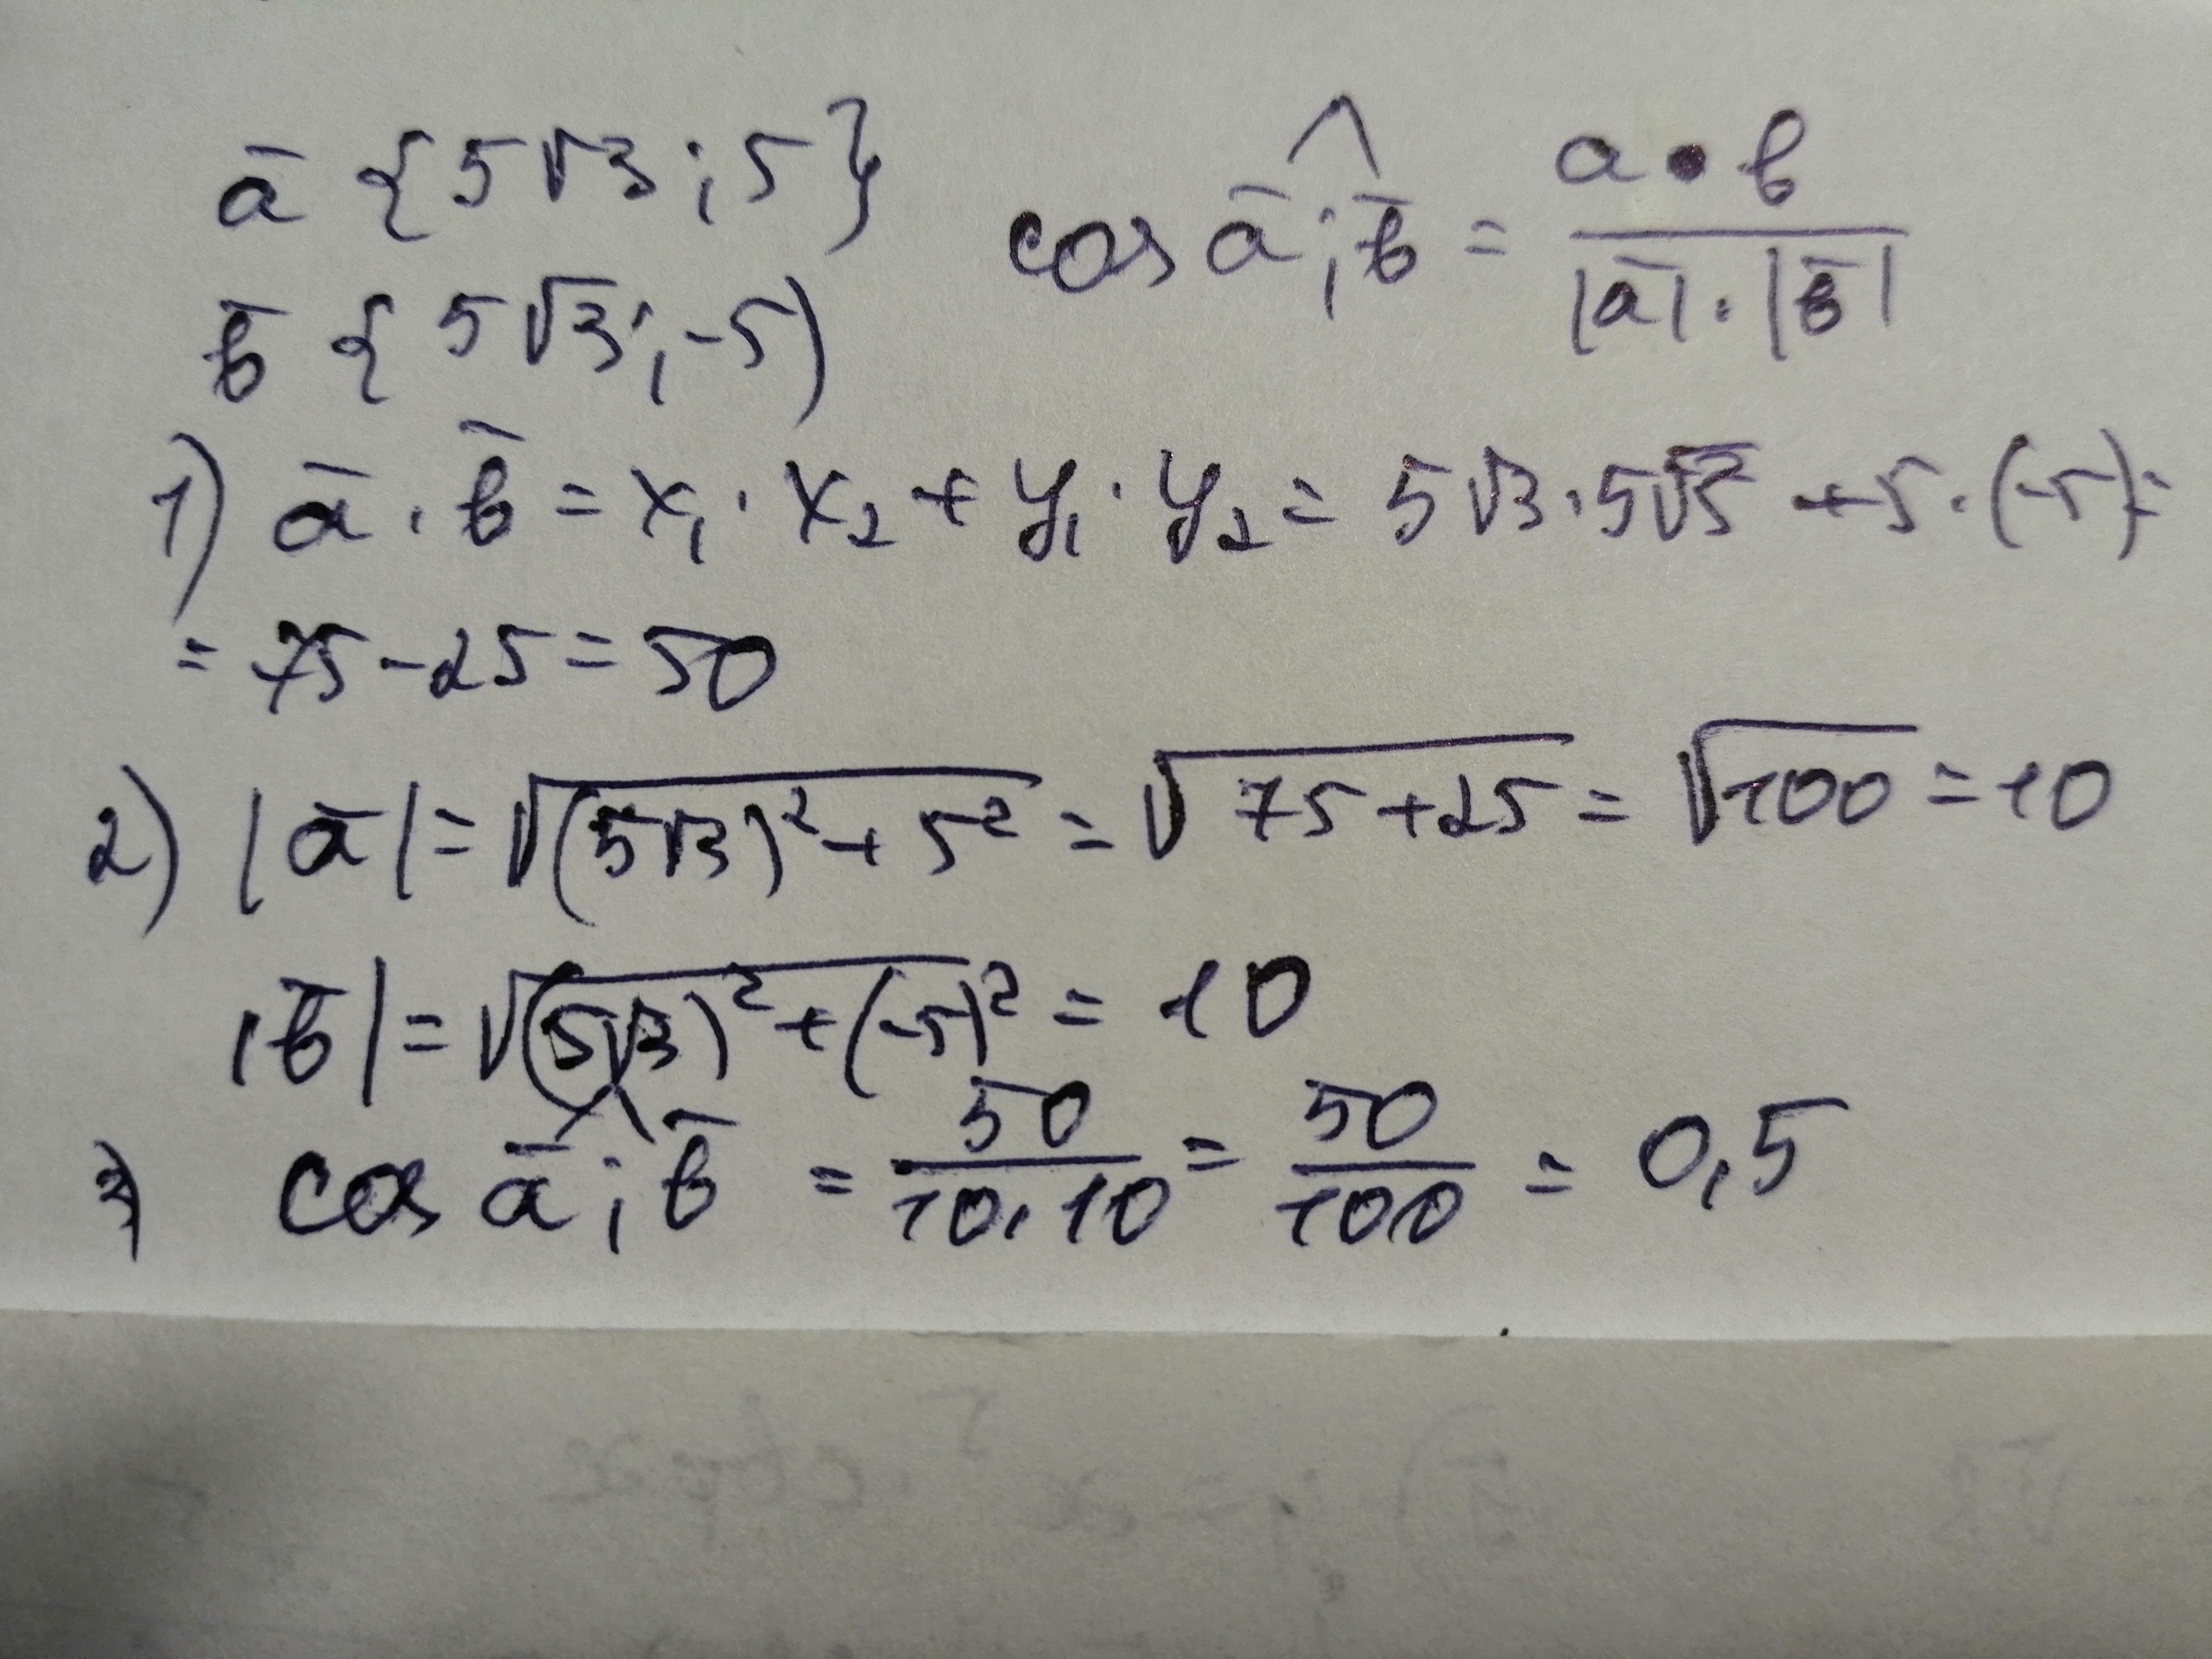 ā {5√3 ; 5}
cos ā ; b̄ = a • b / |ā| · |b̄|
b̄ {5√3 ; -5)
1) ā · b̄ = x₁ · x₂ + y₁ · y₂ = 5√3 · 5√3 + 5 · (-5) =
= 75 - 25 = 50
2) |ā| = √(5√3)² + 5² = √75 + 25 = √100 = 10
|b̄| = √(5√3)² + (-5)² = 10
3) cos ā ; b̄ = 50 / 10 · 10 = 50 / 100 = 0,5